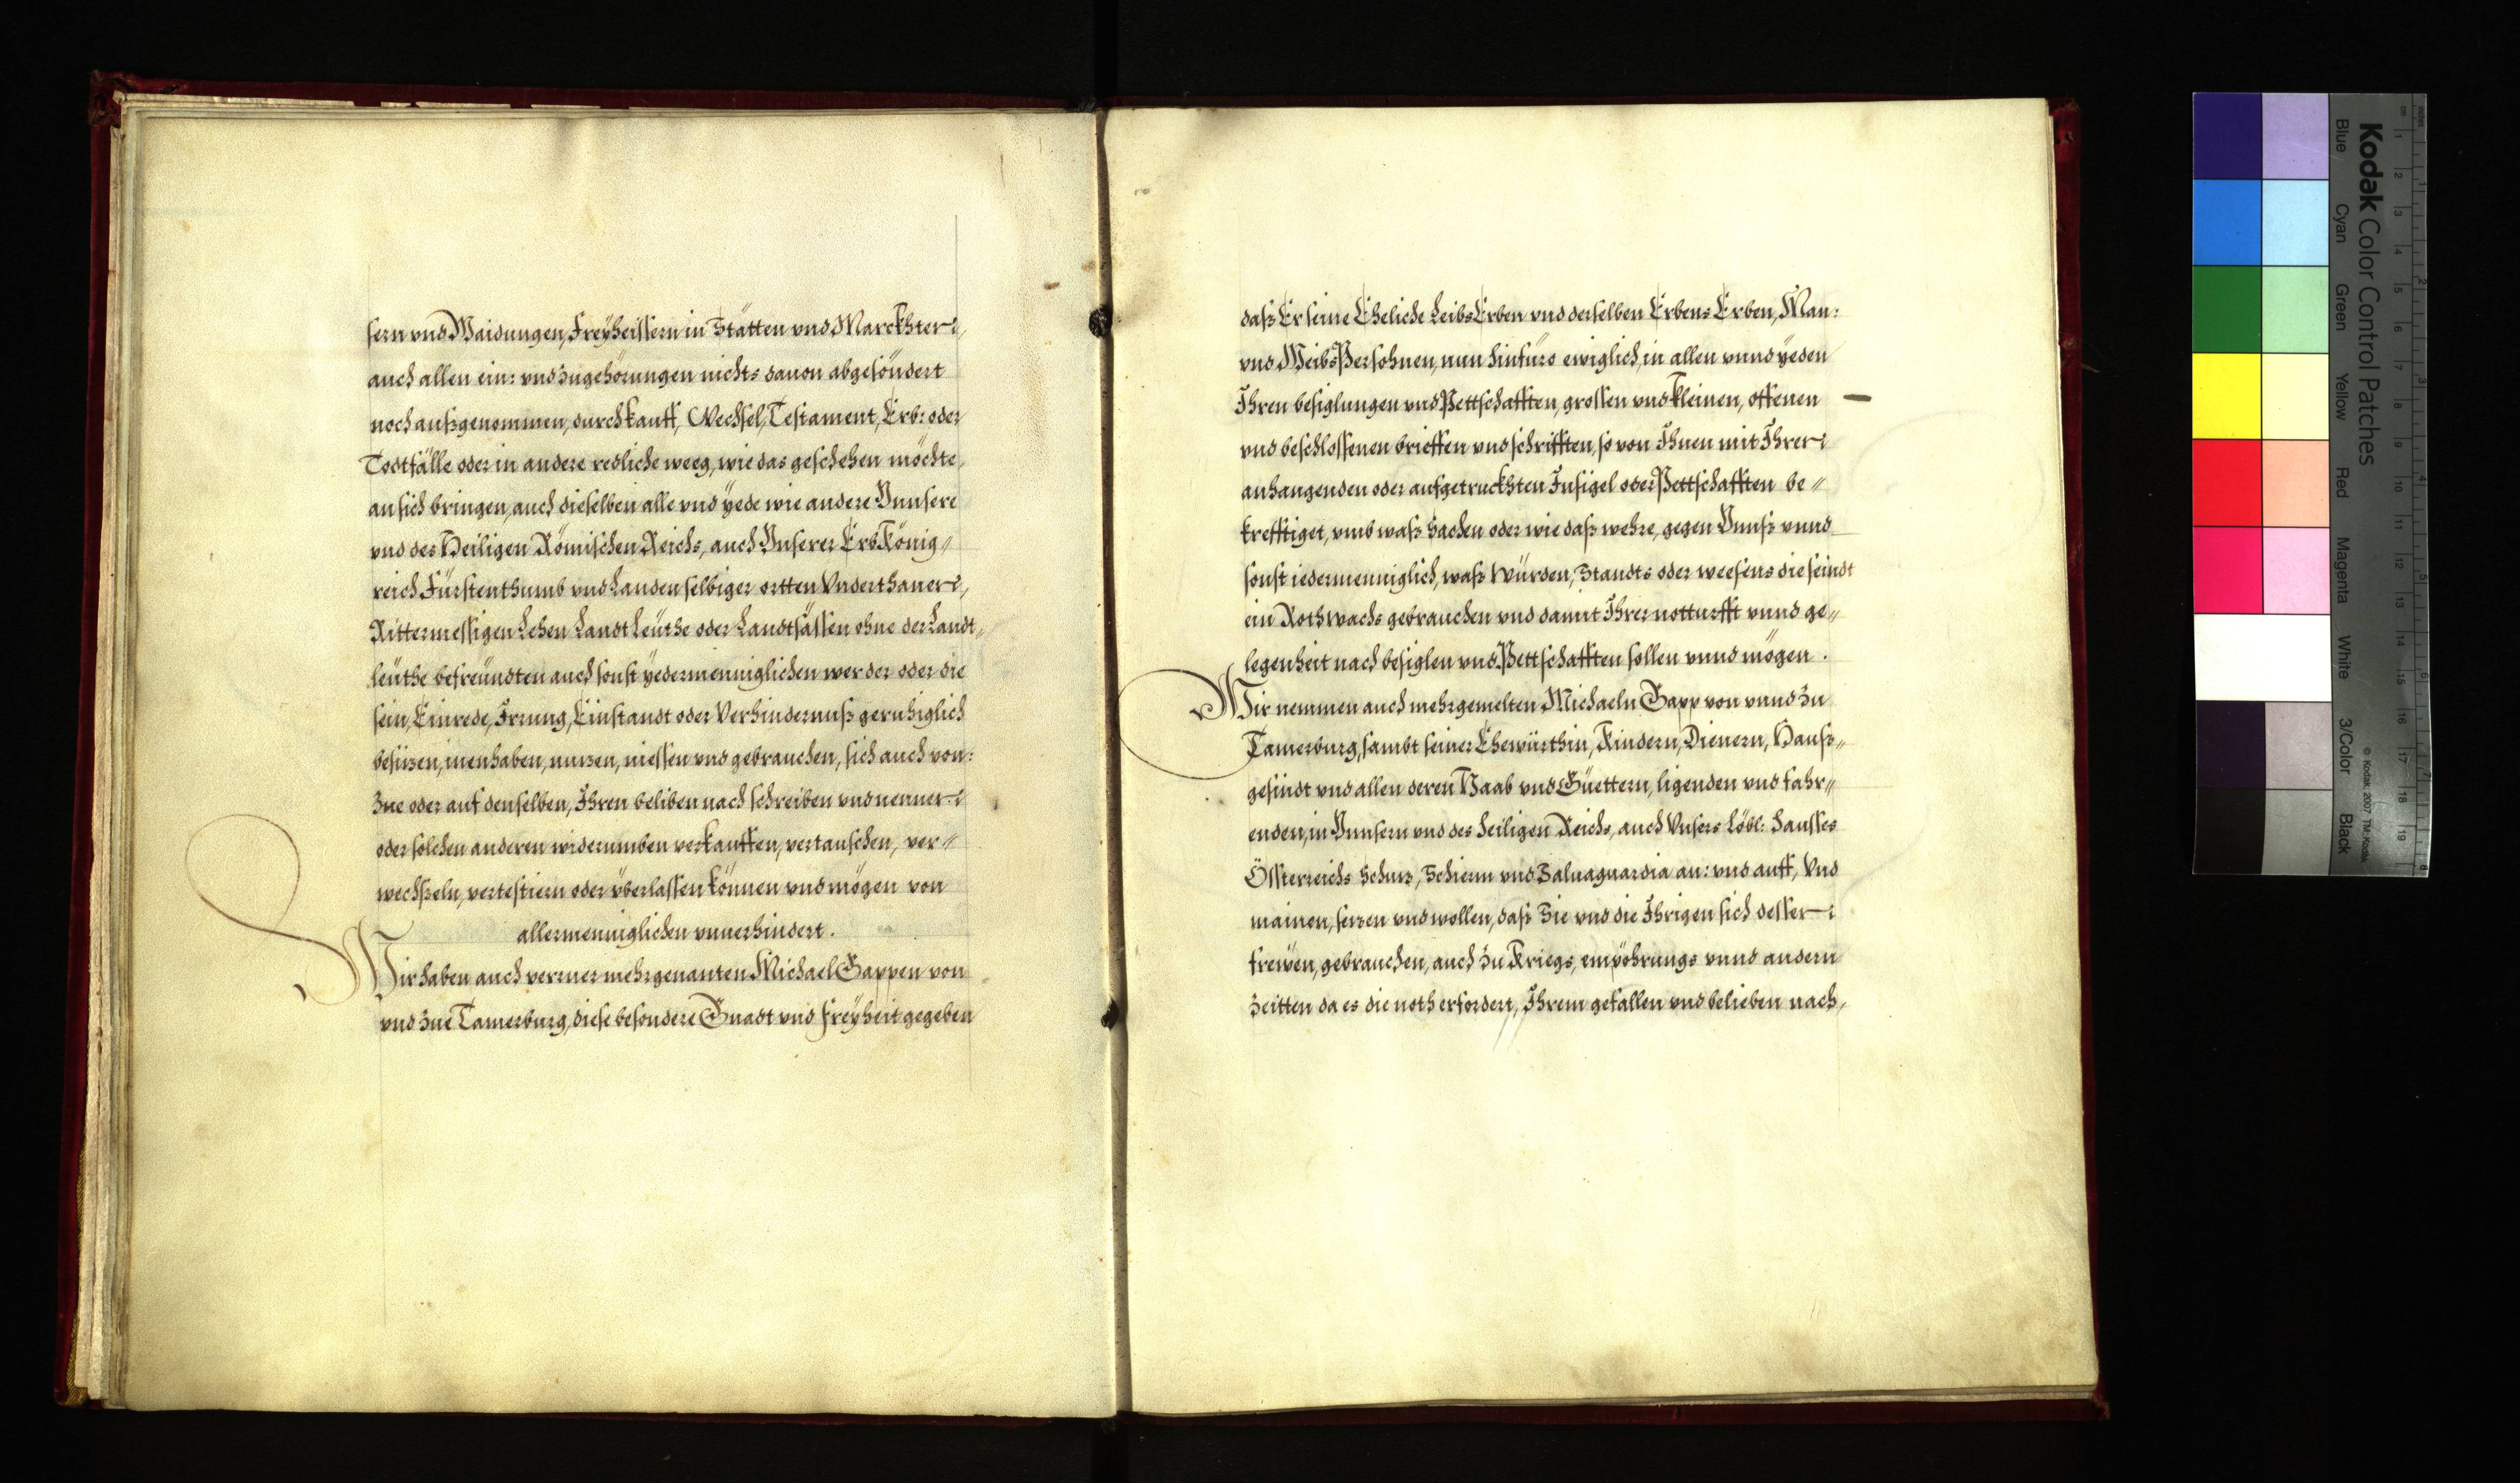 sern vnd Waidungen, Freyheissern in Stätten vnd Marckhten,
auch allen ein: vnd zugehörungen nichts dauon abgesöndert
noch außgenommen, durch kauff, Wechsel, Testament, Erb: oder
Todtfälle oder in andere redliche weeg, wie das geschehen möchte,
an sich bringen, auch dieselben alle vnd yede wie andere Vnnsere
vnd des Heiligen Römischen Reichs, auch Vnserer ErbKönig//
reich Fürstenthumb vnd Landen selbiger ortten Vnderthanen,
Rittermessigen Lehen LandtLeüthe oder Landtsässen ohne der Landt//
leüthe befreündten auch sonst yedermenniglichen wer der oder die
sein, Einrede, Irrung, Einstandt oder Verhindernuß geruhiglich
besizen, innenhaben, nuzen, niessen vnd gebrauchen, sich auch von:
zue oder auf denselben, Ihren beliben nach schreiben vnd nennen:
oder solchen anderen widerumben verkauffen, vertauschen, ver//
wechßeln, vertestiern oder überlassen können vnd mögen von
allermenniglichen vnuerhindert.
Wir haben auch verrner mehrgenanten Michael Gappen von
vnd zue Tamerburg, diese besondere Gnadt vnd freyheit gegeben
daß Er seine Eheliche LeibsErben vnd derselben Erbens Erben, Man:
vnd WeibsPersohnen, nun hinfüro ewiglich, in allen vnnd yeden
Ihren besiglungen vnd Pettschafften, grossen vnd kleinen, offenen
vnd beschlossenen brieffen vnd schrifften, so von Ihnen mit Ihren
anhangenden oder aufgetruckhten Insigel oder Pettschafften be//
krefftiget, vmb waß Sachen oder wie daß wehre, gegen Vnnß vnnd
sonst iedermenniglich, waß Würden, Standts oder weesens die seindt
ein Roth wachs gebrauchen vnd damit Ihrer notturfft vnnd ge//
legenheit nach besiglen vnd Pettschafften sollen vnnd mögen.
Wir nemmen auch mehrgemelten Michaeln Gapp von vnnd zu
Tamerburg, sambt seiner Ehewürthin, Kindern, Dienern, Hauß//
gesindt vnd allen deren Haab vnd Güettern, ligenden vnd fahr//
enden, in Vnnsern vnd des heiligen Reichs, auch Vnsers Löbl: hausses
Össterreichs Schuz, Schierm vnd Saluaguardia an: vnd auff, Vnd
mainen, sezen vnd wollen, daß Sie vnd die Ihrigen sich dessen
frewen, gebrauchen, auch zu Kriegs, empöhrungs vnnd andern
zeitten da es die noth erfordert, Ihrem gefallen vnd belieben nach,
Kodak Color Control Patches
Blue
Cyan
Green
Yellow
Red
Magenta
White
3/Color
Black
© Kodak, 2007 TM: Kodak